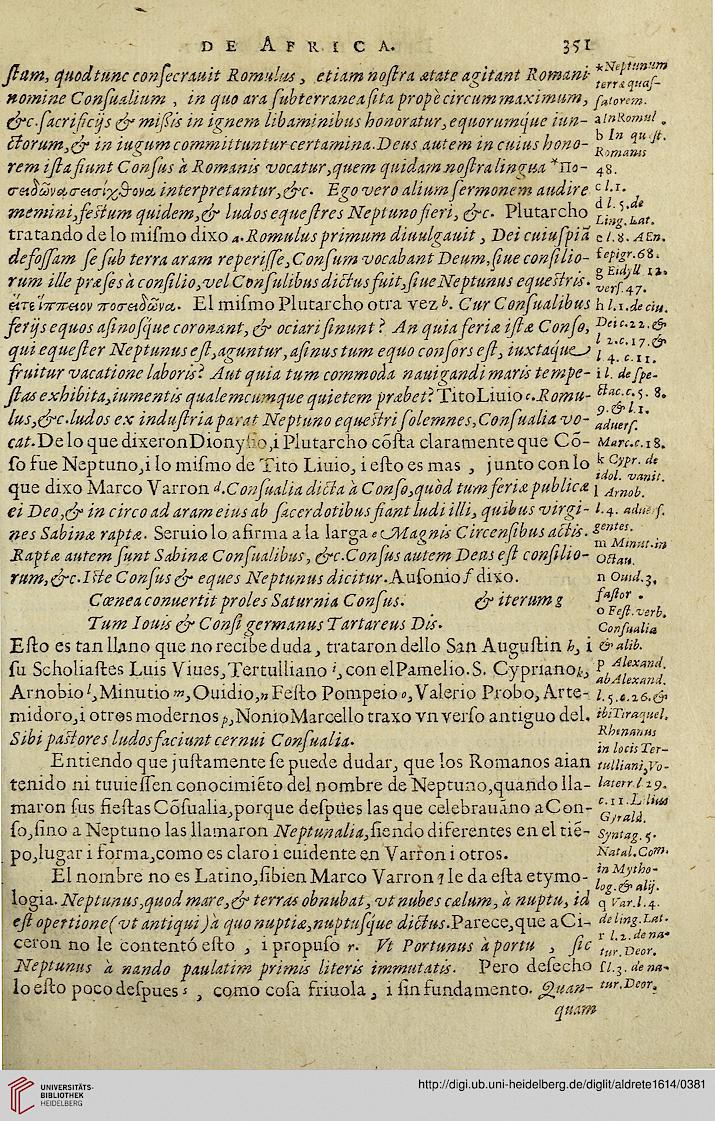 DE AFRICA. 351
ſtam, quod tunc conſecrauit Romulus, etiam noſtra ætate agitant Romani
nomine Conſualium, in quo ara ſubterranea ſita propè circum maximum,
&c. ſacrificijs & mißis in ignem libaminibus honoratur, equorumque iun-
ctorum, & in iugum committuntur certamina. Deus autem in cuius hono-
rem iſta fiunt Conſus à Romanis vocatur, quem quidam noſtra lingua *Πο-
σειδῶνα σεισίχθονα interpretantur, &c. Ego vero alium ſermonem audire
memini, feſtum quidem, & ludos equeſtres Neptuno fieri, &c. Plutarcho
tratando de lo miſmo dixo a. Romulus primum diuulgauit, Dei cuiuſpiã
defoſſam ſe ſub terra aram reperiſſe, Conſum vocabant Deum, ſiue conſilio-
rum ille præſes à conſilio, vel Conſulibus dictus fuit, ſiue Neptunus equeſtris.
εἴτε ἵππειον ποσειδῶνα. El miſmo Plutarcho otra vez b. Cur Conſualibus
ferijs equos aſinoſque coronant, & ociari ſinunt? An quia feriæ iſtæ Conſo,
qui equeſter Neptunus eſt, aguntur, aſinus tum equo conſors eſt, iuxtaque
fruitur vacatione laboris? Aut quia tum commoda nauigandi maris tempe-
ſtas exhibita, iumentis qualemcumque quietem præbet? Tito Liuio c. Romu-
lus, &c. ludos ex induſtria parat Neptuno equeſtri ſolemnes, Conſualia vo-
cat. De lo que dixeron Dionyſio, i Plutarcho cõſta claramente que Cõ-
ſo fue Neptuno, i lo miſmo de Tito Liuio, i eſto es mas, junto con lo
que dixo Marco Varron d. Conſualia dicta à Conſo, quòd tum feriæ publicæ
ei Deo, & in circo ad aram eius ab ſacerdotibus fiant ludi illi, quibus virgi-
nes Sabinæ raptæ. Seruio lo afirma a la larga e Magnis Circenſibus actis.
Raptæ autem ſunt Sabinæ Conſualibus, &c. Conſus autem Deus eſt conſilio-
rum, &c. Iſte Conſus & eques Neptunus dicitur. Auſonio f dixo.
Cœnea conuertit proles Saturnia Conſus. & iterum g
Tum Iouis & Conſi germanus Tartareus Dis.
Eſto es tan llano que no recibe duda, trataron dello San Auguſtin h, i
ſu Scholiaſtes Luis Viues, Tertulliano i, con el Pamelio. S. Cypriano k,
Arnobio l, Minutio m, Ouidio, n Feſto Pompeio o, Valerio Probo, Arte-
midoro, i otros modernos p, Nonio Marcello traxo vn verſo antiguo del.
Sibi paſtores ludos faciunt cernui Conſualia.
Entiendo que juſtamente ſe puede dudar, que los Romanos aian
tenido ni tuuieſſen conocimiẽto del nombre de Neptuno, quando lla-
maron ſus fieſtas Cõſualia, porque deſpues las que celebrauãno a Con-
ſo, ſino a Neptuno las llamaron Neptunalia, ſiendo diferentes en el tiẽ-
po, lugar i forma, como es claro i euidente en Varron i otros.
El nombre no es Latino, ſibien Marco Varron q le da eſta etymo-
logia. Neptunus, quod mare, & terras obnubat, vt nubes cælum, à nuptu, id
eſt opertione (vt antiqui) à quo nuptiæ, nuptuſque dictus. Parece, que a Ci-
ceron no le contentó eſto, i propuſo r. Vt Portunus à portu, ſic
Neptunus à nando paulatim primis literis immutatis. Pero deſecho
lo eſto poco deſpues s, como coſa friuola, i ſin fundamento. Quan-
quam
*Neptunum
terræ quaſ-
ſatorem.
a In Romul.
b In quæſt.
Romanis
48.
c l.1.
d l.5. de
Ling. Lat.
e l.8. Æn.
f epigr. 68.
g Eidyll 12.
verſ. 47.
h l.1. de ciu.
Dei c.22. &
l 2.c.17. &
l 4. c.11.
i l. de ſpe-
ctac. c.5. 8.
9. & l.1.
aduerſ.
Marc. c.18.
k Cypr. de
idol. vanit.
l Arnob.
l.4. aduerſ.
gentes.
m Minut. in
Octau.
n Ouid. 3.
faſtor.
o Feſt. verb.
Conſualia
& alib.
p Alexand.
ab Alexand.
l.5.c.26. &
ibi Tiraquel.
Rhenanus
in locis Ter-
tulliani, Vo-
laterr. l 29.
c.11. Lilius
Gyrald.
Syntag. 5.
Natal. Com.
in Mytho-
log. & alij.
q Var. l.4.
de ling. Lat.
r l.2. de na-
tur. Deor.
ſ l.3. de na-
tur. Deor.
UNIVERSITÄTS-
BIBLIOTHEK
HEIDELBERG
http://digi.ub.uni-heidelberg.de/diglit/aldrete1614/0381